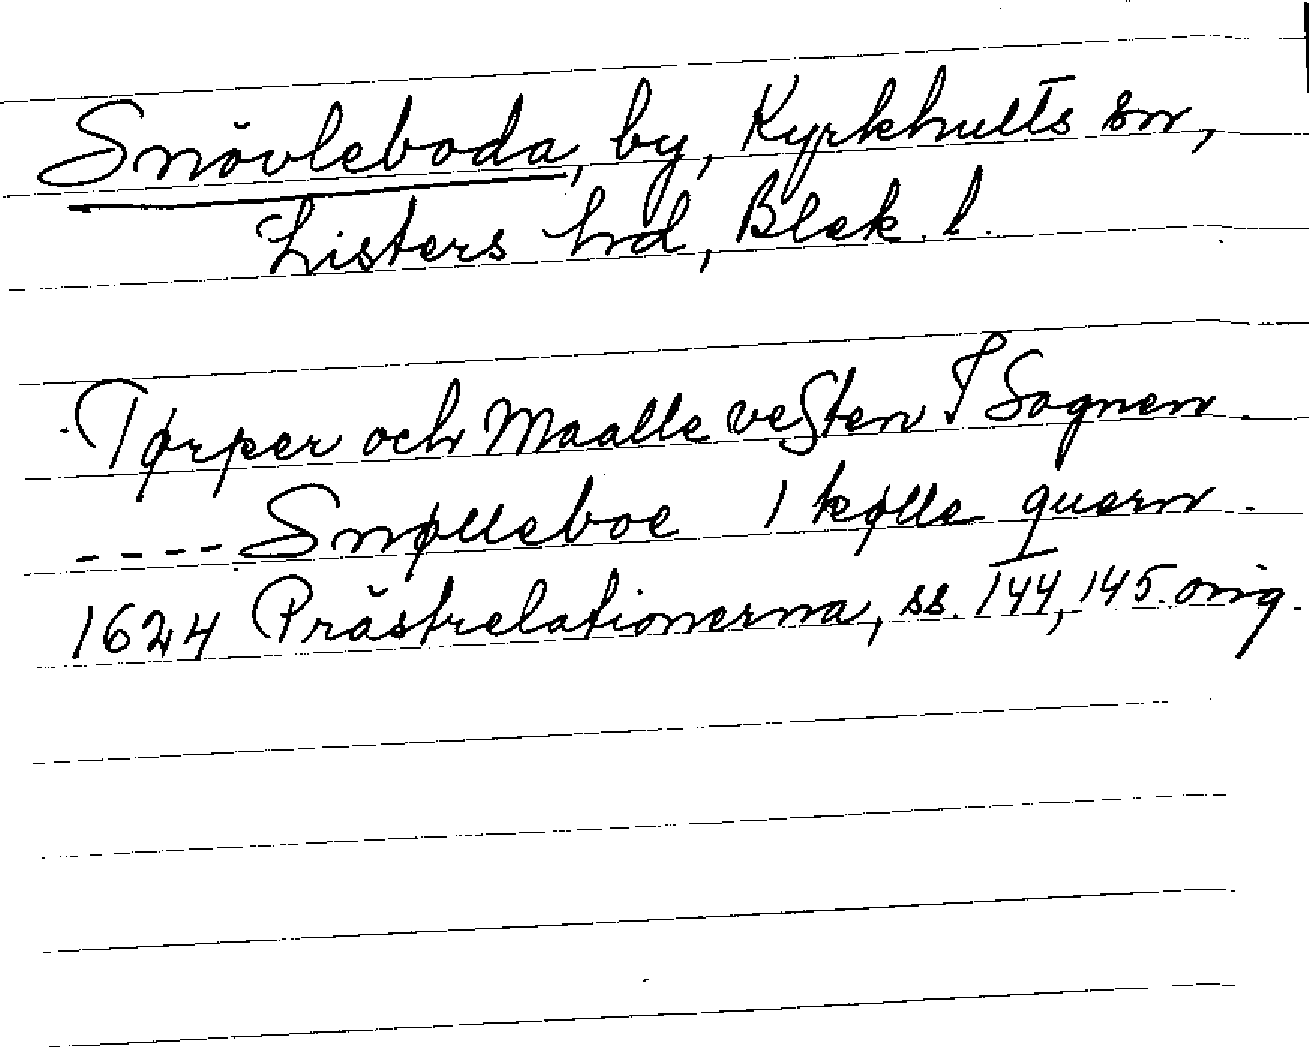 Snövleboda, by, Kyrkhults sn,
Listers hd, Blek. l.
Tørper och Maalle vesten I Sognen.
---- Snølleboe 1 kølle quern.
1624 Prästrelationerna, ss. 144, 145 orig.